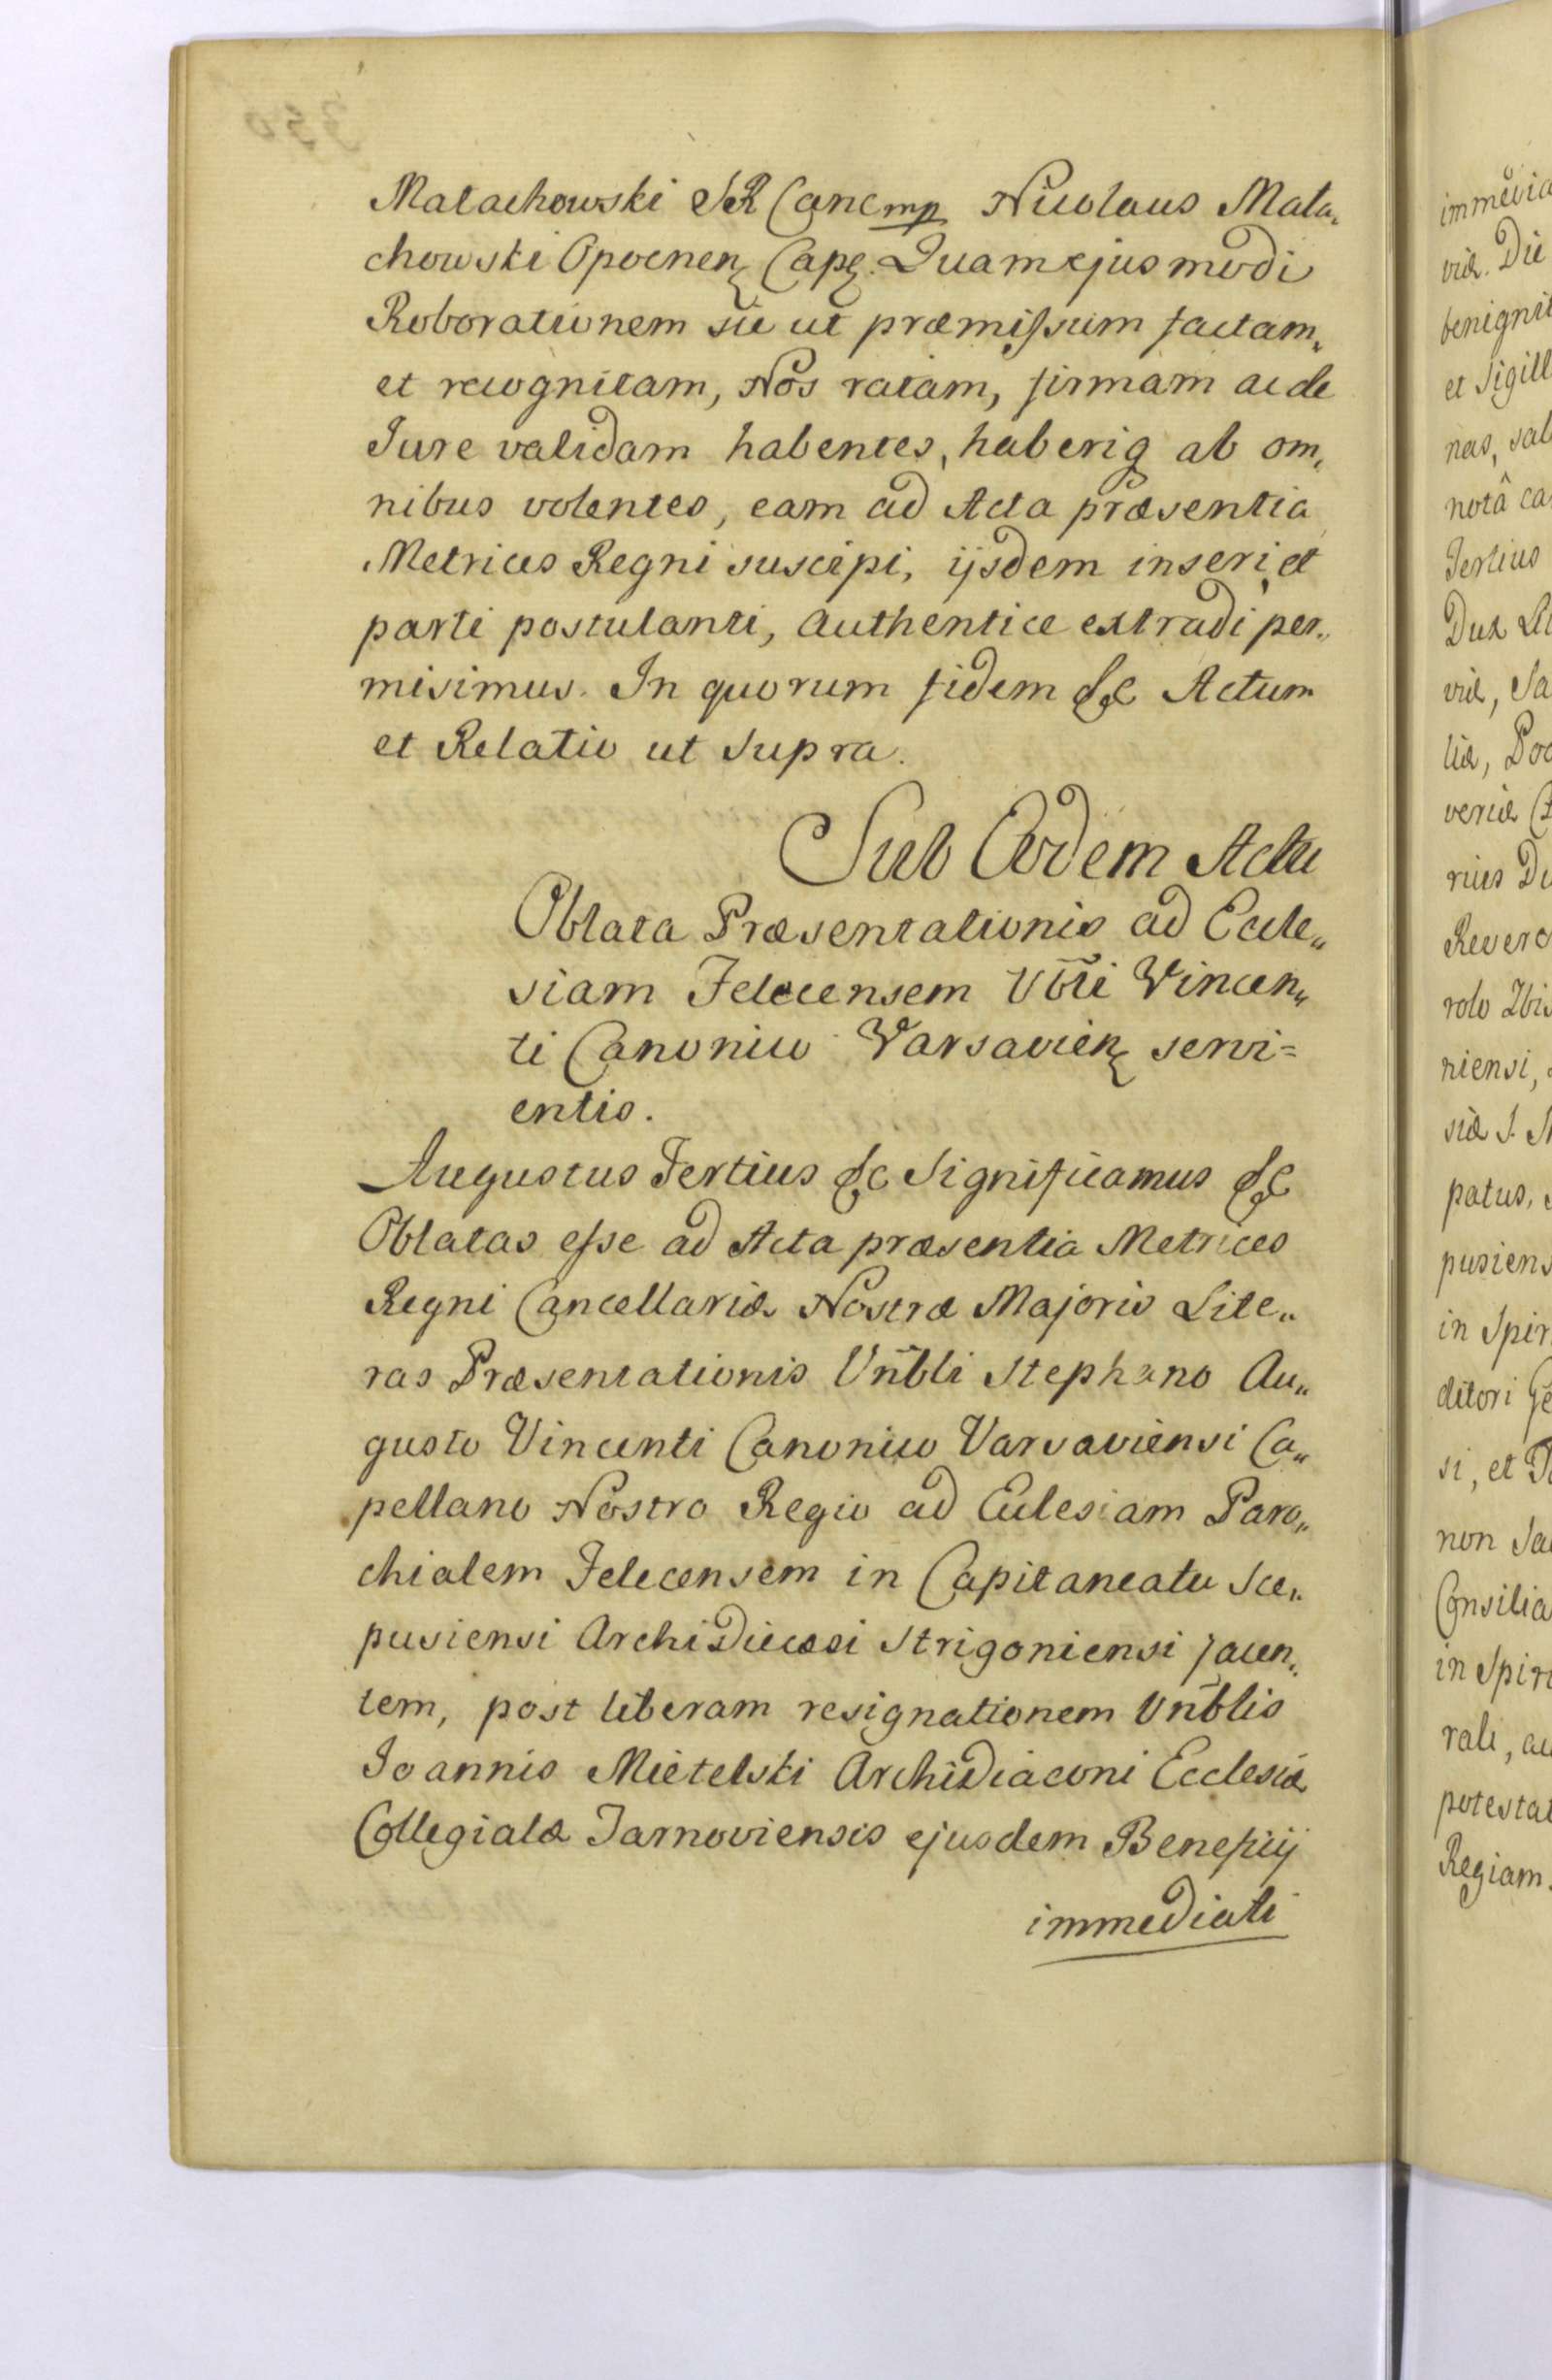 Małachowski SR Canc mp Nicolaus Mała„
chowski Opocnen Cap. Quam ejusmodi
Roborationem sic ut præmissum factam„
et recognitam, Nos ratam, firmam ac de
Jure validam habentes, haberiq ab om„
nibus volentes, eam ad Acta præsentia
Metrices Regni suscipi, ijsdem inseri, et
parti postulanti, authentice extradi per„
misimus. In quorum fidem &c Actum
et Relatio ut Supra.
Sub Eodem Actu
Oblata Præsentationis ad Eccle„
siam Jelecensem Vbli Vincen„
ti Canonico Varsavien servi=
entis.
Augustus Tertius &c Significamus &c
Oblatas esse ad Acta præsentia Metrices
Regni Cancellariæ Nostræ Majoris Lite„
ras Præsentationis Vnbli Stephano Au„
gusto Vincenti Canonico Varsaviensi Ca„
pellano Nostro Regio ad Ecclesiam Paro„
chialem Jelecensem in Capitaneatu Sce„
pusiensi Archidiœcesi Strigoniensi jacen„
tem, post liberam resignationem Vnblis
Joannis Mietelski Archidiaconi Ecclesiæ
Collegialæ Tarnoviensis ejusdem Beneficij
immediati
350
immedia
viæ. Die
benignit
et Sigill
nas, sal
notâ ca
Tertius
Dux Li
viæ, Sa
liæ, Pod
veriæ
rius Du
Revere
rolo Zbis
niensi,
siæ S.
patus,
pusiens
in Spir
ditori Ge
si, et
non Sa
Consilia
in Spiri
rali, ac
potestat
Regiam.